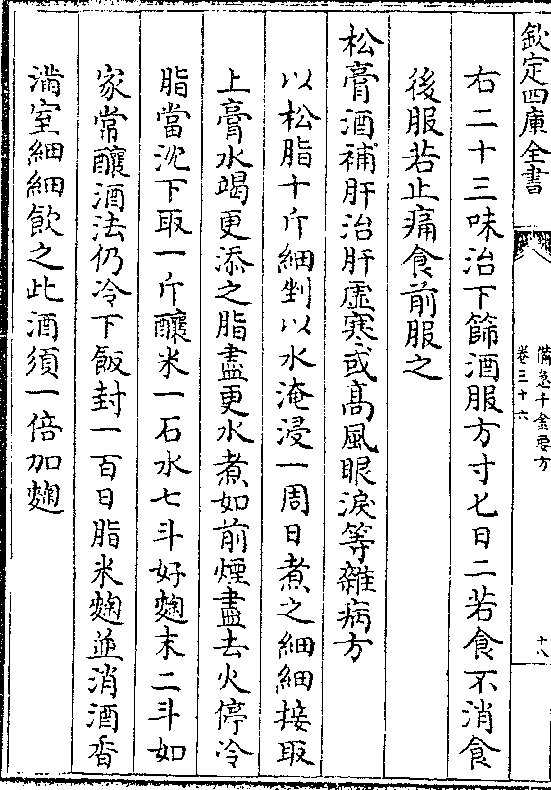 欽定四庫全書
備急千金要方
卷三十六
十八
右二十三味治下篩酒服方寸匕日二若食不消食
後服若止痛食前服之
松膏酒補肝治肝虛寒或高風眼淚等雜病方
以松脂十斤細剉以水淹浸一周日煮之細細接取
上膏水竭更添之脂盡更水煮如前煙盡去火停冷
脂當沈下取一斤釀米一石水七斗好麴末二斗如
家常釀酒法仍冷下飯封一百日脂米麴並消酒香
滿室細細飲之此酒須一倍加麴